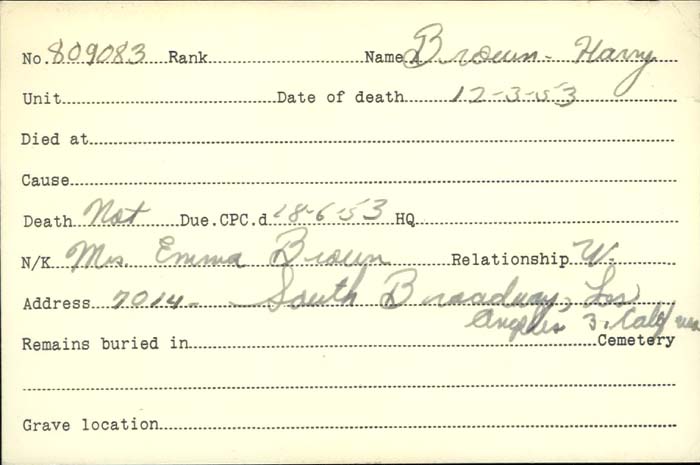 No. 809083 Rank Name Brown - Harry
Unit Date of death 12-3-53
Died at
Cause
Death Not Due. CPC. d 18-6-53 HQ
N/K Mrs. Emma Brown Relationship W.
Address 7014 - South Broadway, Los
Angeles 3. Calif
Remains buried in Cemetery
Grave location